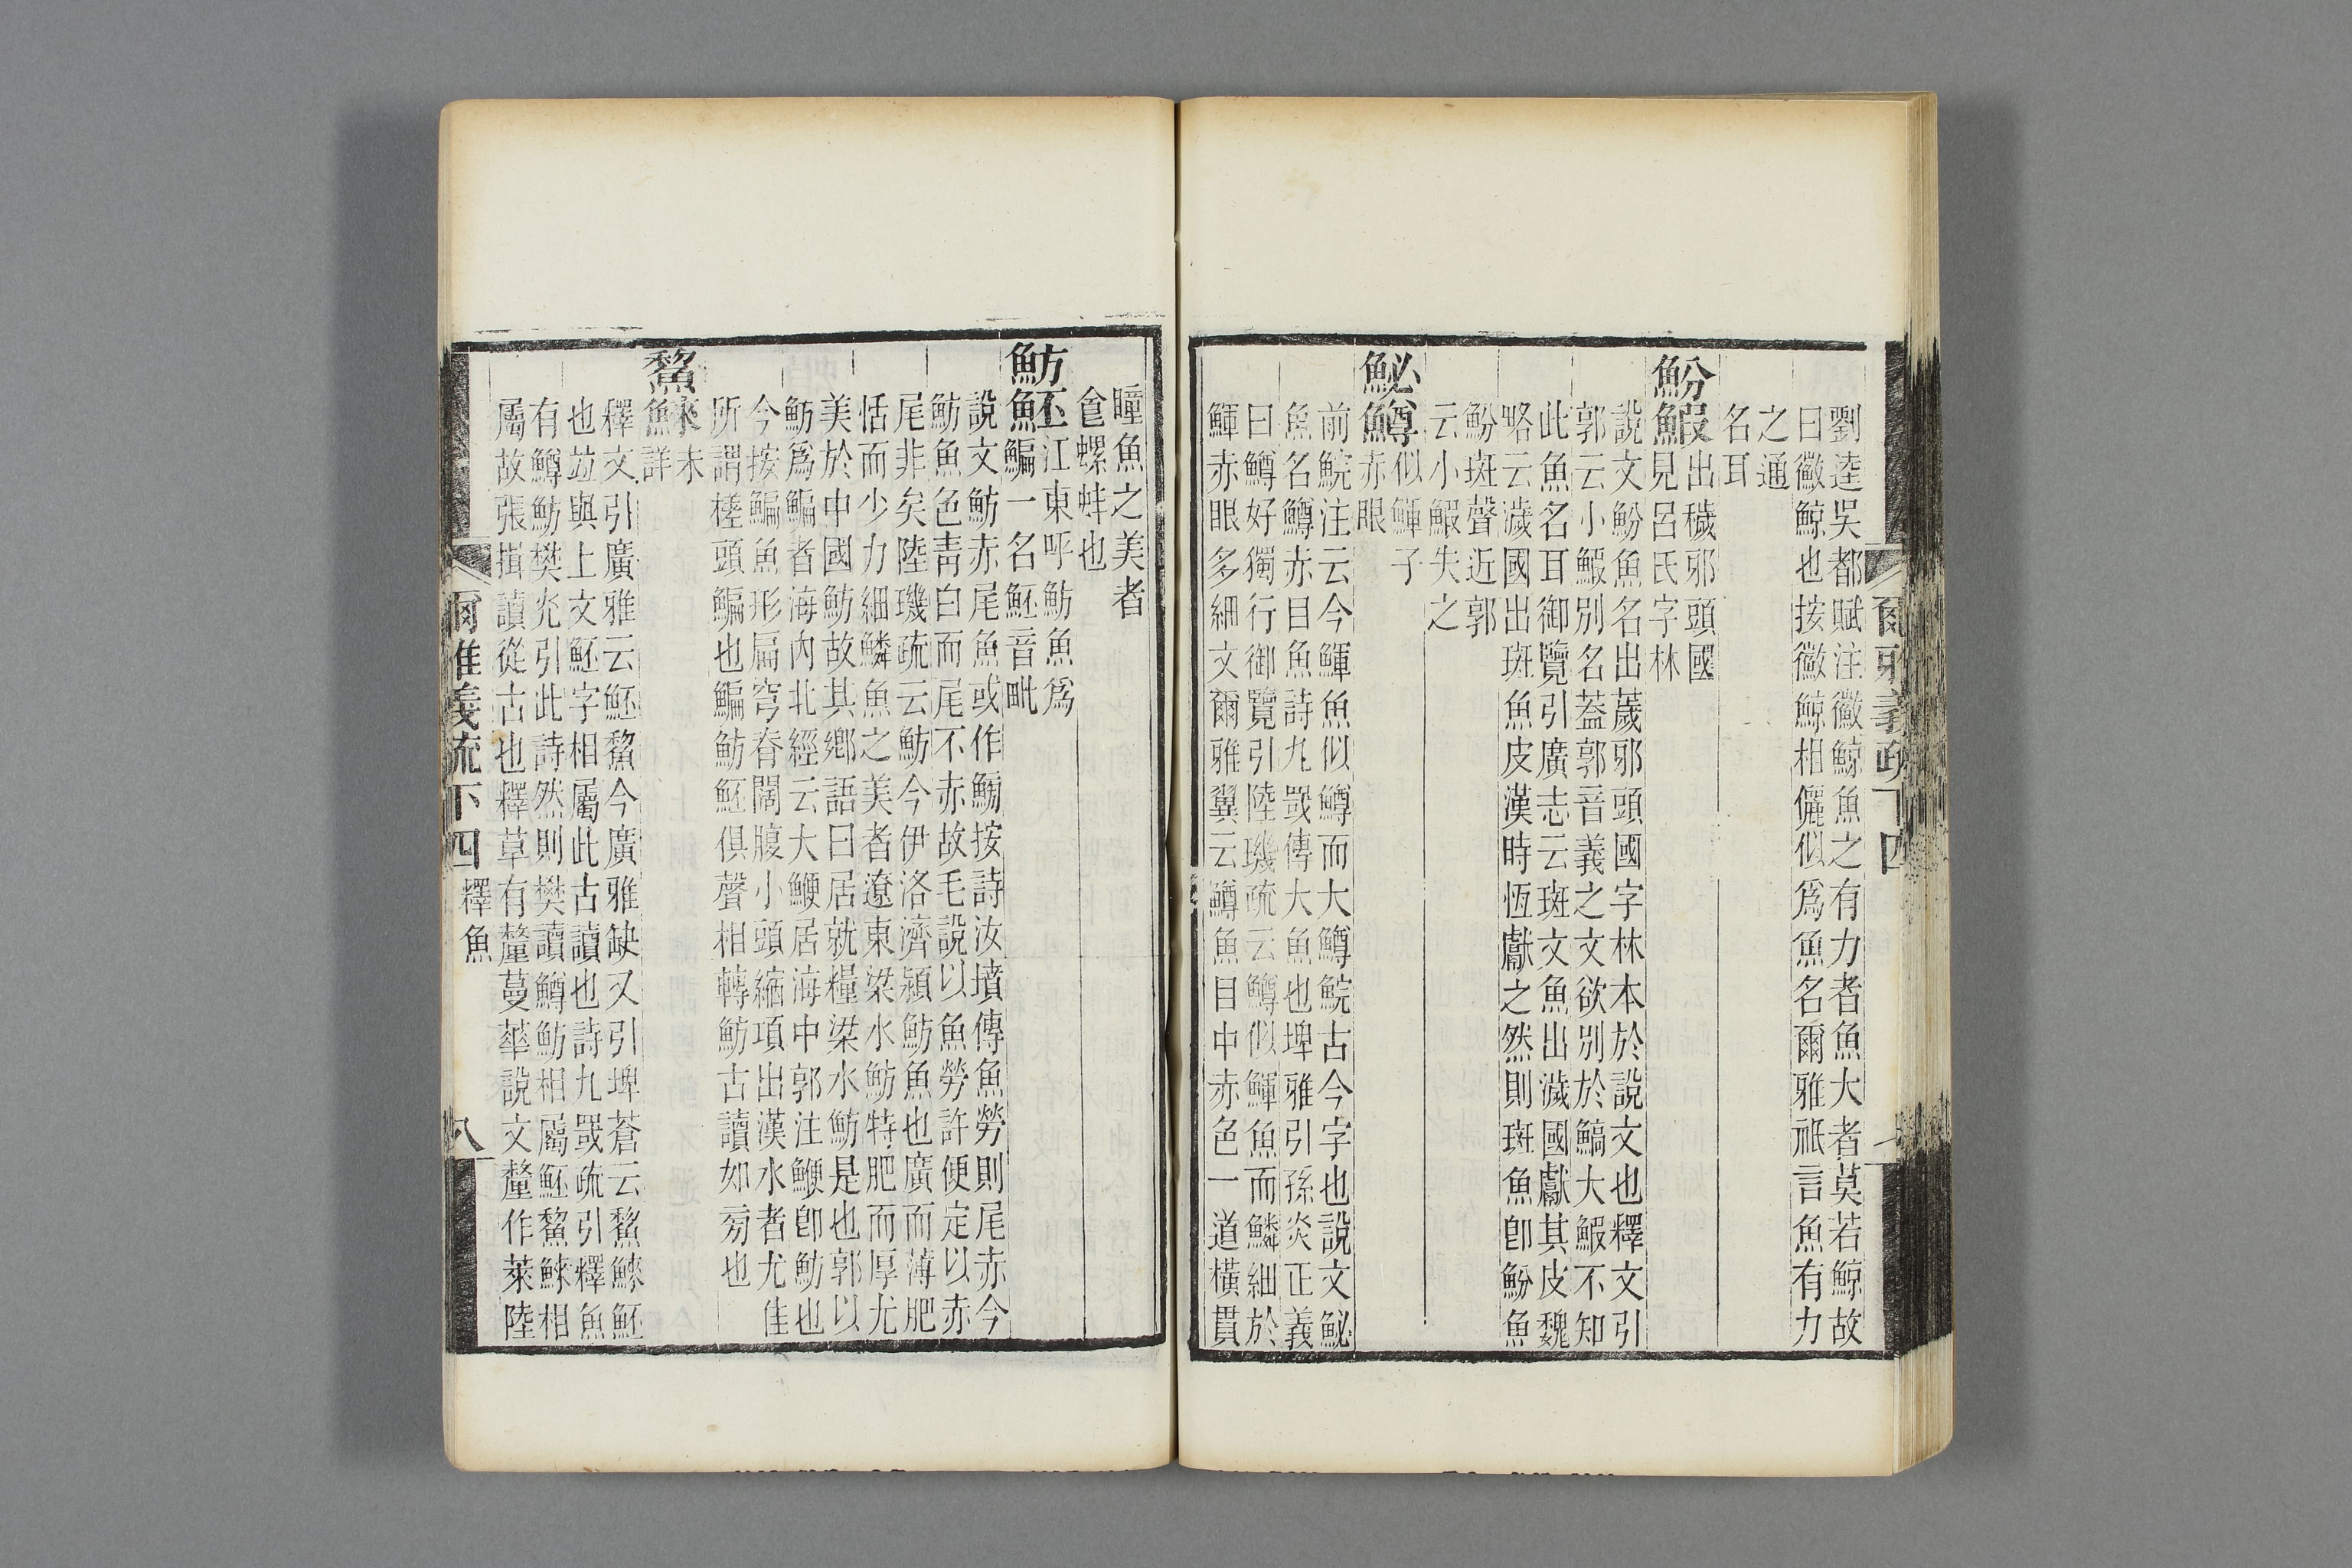 劉逵吳都賦注黴鯨魚之有力者魚大者莫若鯨故
曰黴鯨也按黴鯨相儷似爲魚名爾雅祇言魚有力
之通
名耳
魵鰕出穢邪頭國
見呂氏字林
說文魵魚名出薉邪頭國字林本於說文也釋文引
郭云小鰕別名葢郭音義之文欲別於鰝大鰕不知
此魚名耳御覽引廣志云斑文魚出濊國獻其皮魏
略云濊國出斑魚皮漢時恆獻之然則斑魚卽魵魚
魵斑聲近郭
云小鰕失之
鮅鱒似鯶子
赤眼
前鯇注云今鯶魚似鱒而大鱒鯇古今字也說文鮅
魚名鱒赤目魚詩九罭傳大魚也埤雅引孫炎正義
曰鱒好獨行御覽引陸璣疏云鱒似鯶魚而鱗細於
鯶赤眼多細文爾雅翼云鱒魚目中赤色一道橫貫
瞳魚之美者
食螺蚌也
魴魾江東呼魴魚爲
鯿一名魾音毗
說文魴赤尾魚或作鰟按詩汝墳傳魚勞則尾赤今
魴魚色靑白而尾不赤故毛說以魚勞許便定以赤
尾非矣陸璣疏云魴今伊洛濟潁魴魚也廣而薄肥
恬而少力細鱗魚之美者遼東梁水魴特肥而厚尤
美於中國魴故其鄉語曰居就糧梁水魴是也郭以
魴爲鯿者海內北經云大鯾居海中郭注鯾卽魴也
今按鯿魚形扁穹脊闊腹小頭縮項出漢水者尤佳
所謂槎頭鯿也鯿魴魾俱聲相轉魴古讀如旁也
鯬鯠未
詳
釋文引廣雅云魾鯬今廣雅缺又引埤蒼云鯬鯠魾
也竝與上文魾字相屬此古讀也詩九罭疏引釋魚
有鱒魴樊光引此詩然則樊讀鱒魴相屬魾鯬鯠相
屬故張揖讀從古也釋草有釐蔓華說文釐作萊陸
爾雅義疏下四 釋魚 八